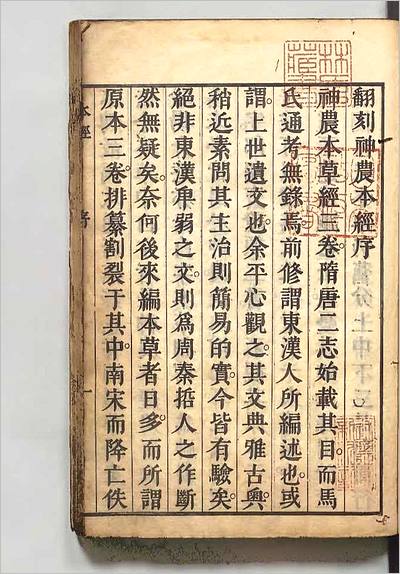 翻刻神農本經序
神農本草經三卷。隋唐二志始載其目。而馬
氏通考無錄焉。前修謂東漢人所編述也。或
謂。上世遺文也。余平心觀之。其文典雅古奧。
稍近素問。其主治則簡易的實。今皆有驗矣。
絕非東漢卑弱之文。則爲周秦哲人之作。斷
然無疑矣。奈何後來編本草者日多。而所謂
原本三卷。排纂割裂于其中。南宋而降。亡佚
本經
序
一